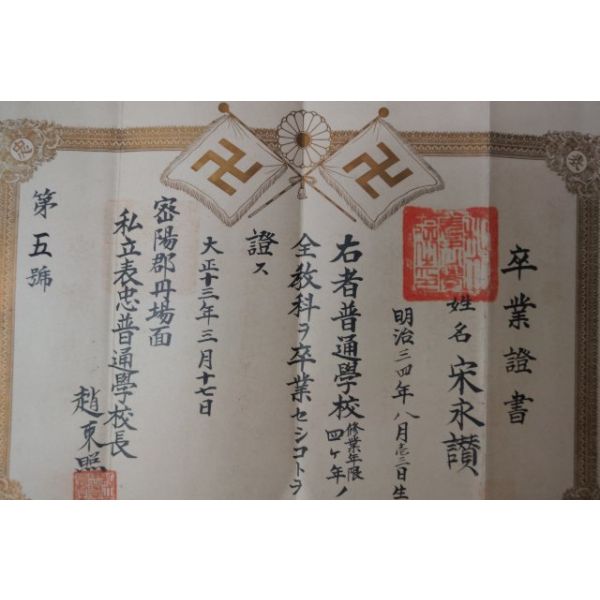 卒業證書
姓名 宋永讃
明治三四年八月壱二日生
右者普通學校修業年限四ヶ年ノ
全教科ヲ卒業セシコトヲ
證ス
大正十三年三月十七日
密陽郡丹場面
私立表忠普通學校長
趙東照
第五號